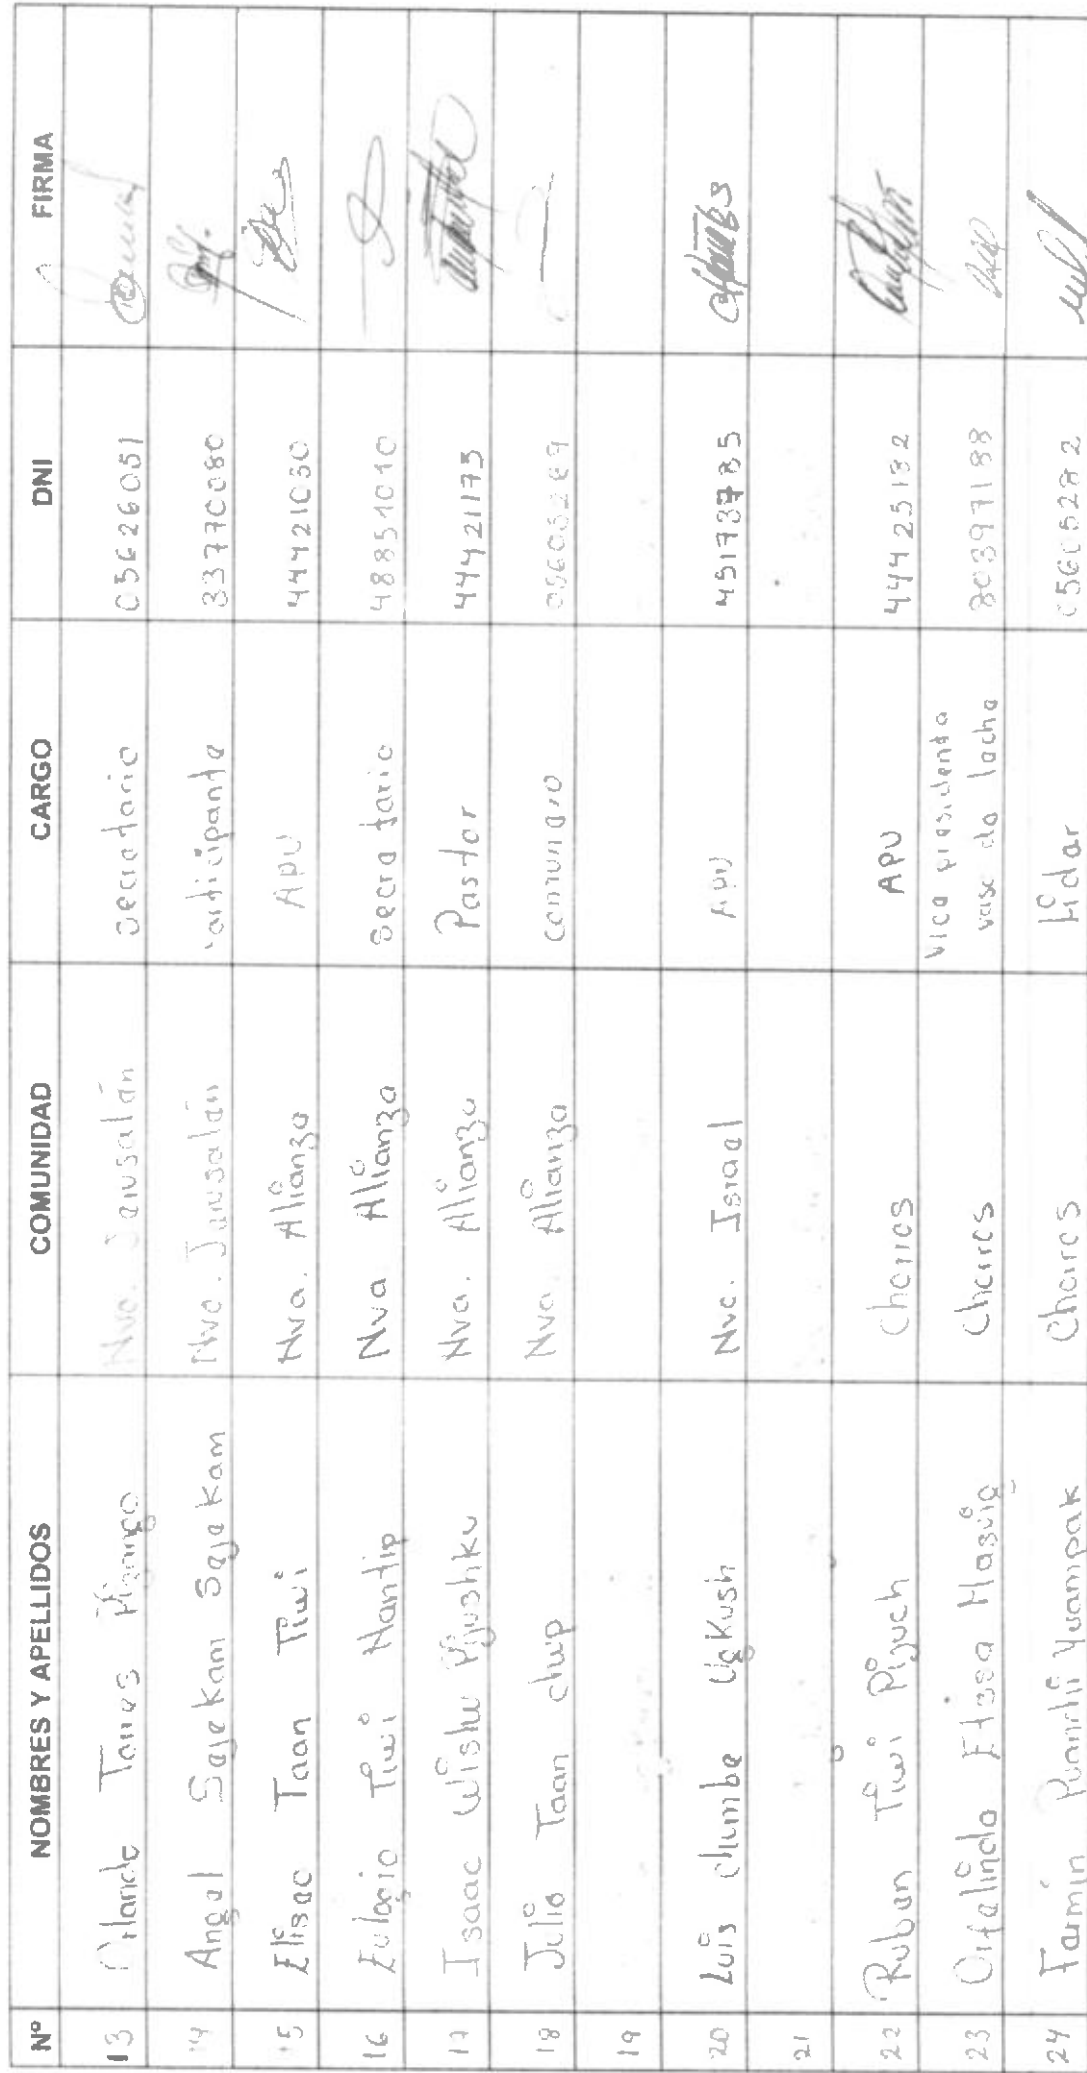 Nº NOMBRES Y APELLIDOS COMUNIDAD CARGO DNI FIRMA
13 Torres Nvo. Jerusalén secretario 05626051
14 Angel Sejekam Sejekam Nvo. Jerusalén participante 33770080
15 Eliseo Taan Tiwi Nva. Alianza APU 44421030
16 Eulogio Tiwi Nantip Nva Alianza Secretario 48851010
17 Isaac Wishu Pijushku Nva. Alianza Pastor 44421173
18 Julio Taan chup Nva. Alianza Comunero
19
20 Luis chumbe Ugkush Nvo. Israel APU
21
22 Ruben Tiwi Pizuch Chorros APU 44425132
23 Etsea Masuig Chorros Vice presidente vaso de leche 80397188
24 Fermin Yuampak Chorros Lider 05605272